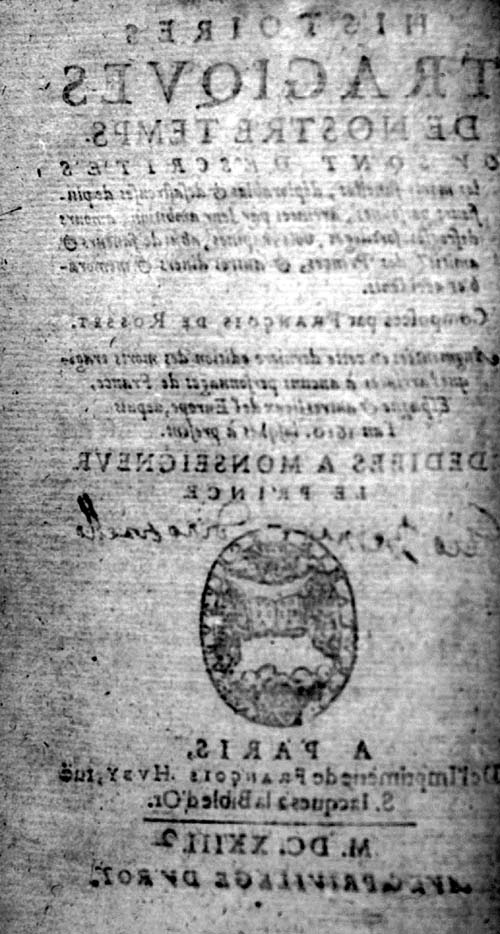 HISTOIRES
TRAGIQVES
DE NOSTRE TEMPS.
OV SONT DESCRITES
les morts funestes, deplorables & desastreuses de plu-
sieurs personnes, arrivees par leur ambition, amours
desreglees, sortileges, vols, rapines, abus de faueurs &
amitiez des Princes, & autres diuers & memora-
bles accidents.
Composees par FRANÇOIS DE ROSSET.
Augmentées en cette derniere edition des morts tragi-
ques arriuees à aucuns personnages de France,
Espagne & autres lieux de l'Europe, depuis
l'an 1610. iusques à present.
DEDIEES A MONSEIGNEVR
LE PRINCE
A PARIS,
De l'Imprimerie de FRANÇOIS HVBY, ruë
S. Iacques à la Bible d'Or.
M. DC. XXIII.
AVEC PRIVILEGE DV ROY.